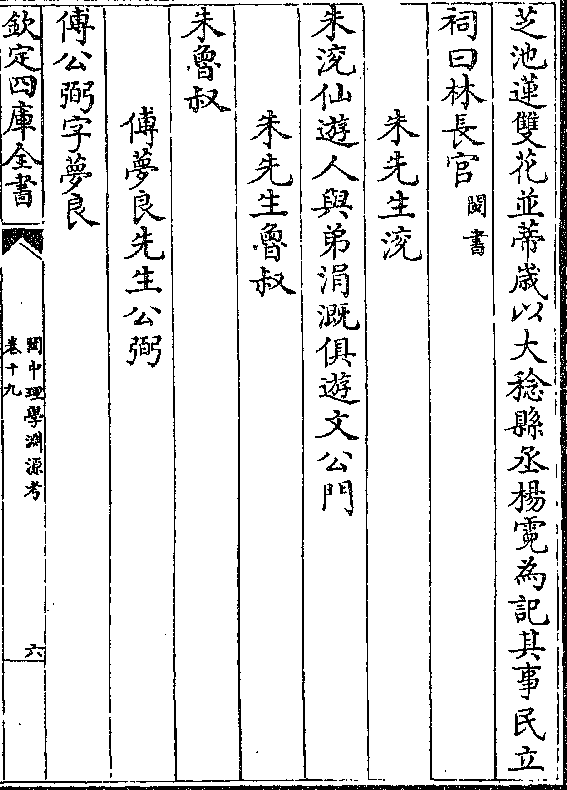 芝池蓮雙花並蒂歲以大稔縣丞楊霓為記其事民立
祠曰林長官閩書
朱先生浣
朱浣仙遊人與弟涓溉俱遊文公門
朱先生魯叔
朱魯叔
傅夢良先生公弼
傅公弼字夢良
欽定四庫全書
閩中理學淵源考
卷十九
六